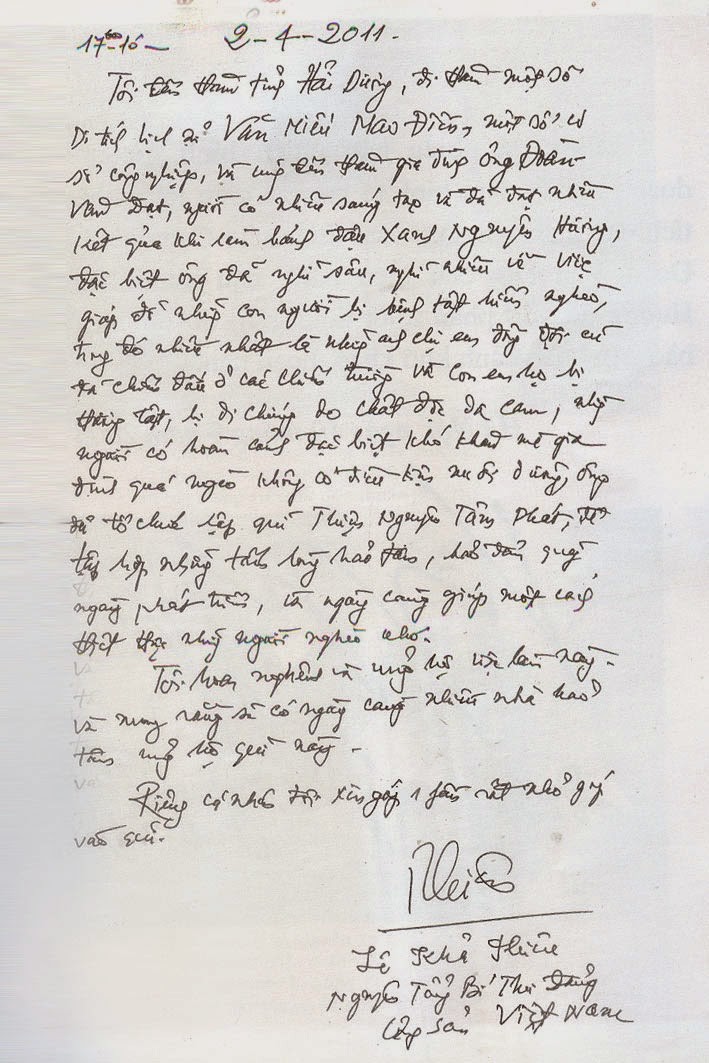 17⁰⁰-10- 2-4-2011.
Tôi đến thăm tỉnh Hải Dương, đi thăm một số
Di tích lịch sử Văn Miếu Mao Điền, một số cơ
sở công nghiệp, và cũng đến thăm gia đình ông Đoàn
Văn Đạt, người có nhiều sáng tạo và đã đạt nhiều
kết quả khi làm bánh đậu xanh Nguyên Hương,
đặc biệt ông đã nghĩ sâu, nghĩ nhiều về việc
giúp đỡ những con người bị bệnh tật hiểm nghèo,
trong đó nhiều nhất là những anh chị em đồng đội cũ
đã chiến đấu ở các chiến trường và con em họ bị
thương tật, bị di chứng do chất độc da cam, những
người có hoàn cảnh đặc biệt khó khăn mà gia
đình quá nghèo không có điều kiện nuôi dưỡng, ông
đã tổ chức lập quĩ Thiện Nguyện Tâm Phát, để
tập hợp những tấm lòng hảo tâm, hảo tâm quỹ
ngày phát triển, và ngày càng giúp một cách
thiết thực những người nghèo khó.
Tôi hoan nghênh và ủng hộ việc làm này.
và mong rằng sẽ có ngày càng nhiều nhà hảo
tâm ủng hộ quĩ này.
Riêng cá nhân tôi xin góp 1 phần rất nhỏ
vào quĩ.
Lê Khả Phiêu
Nguyên Tổng Bí Thư Đảng
Cộng Sản Việt Nam